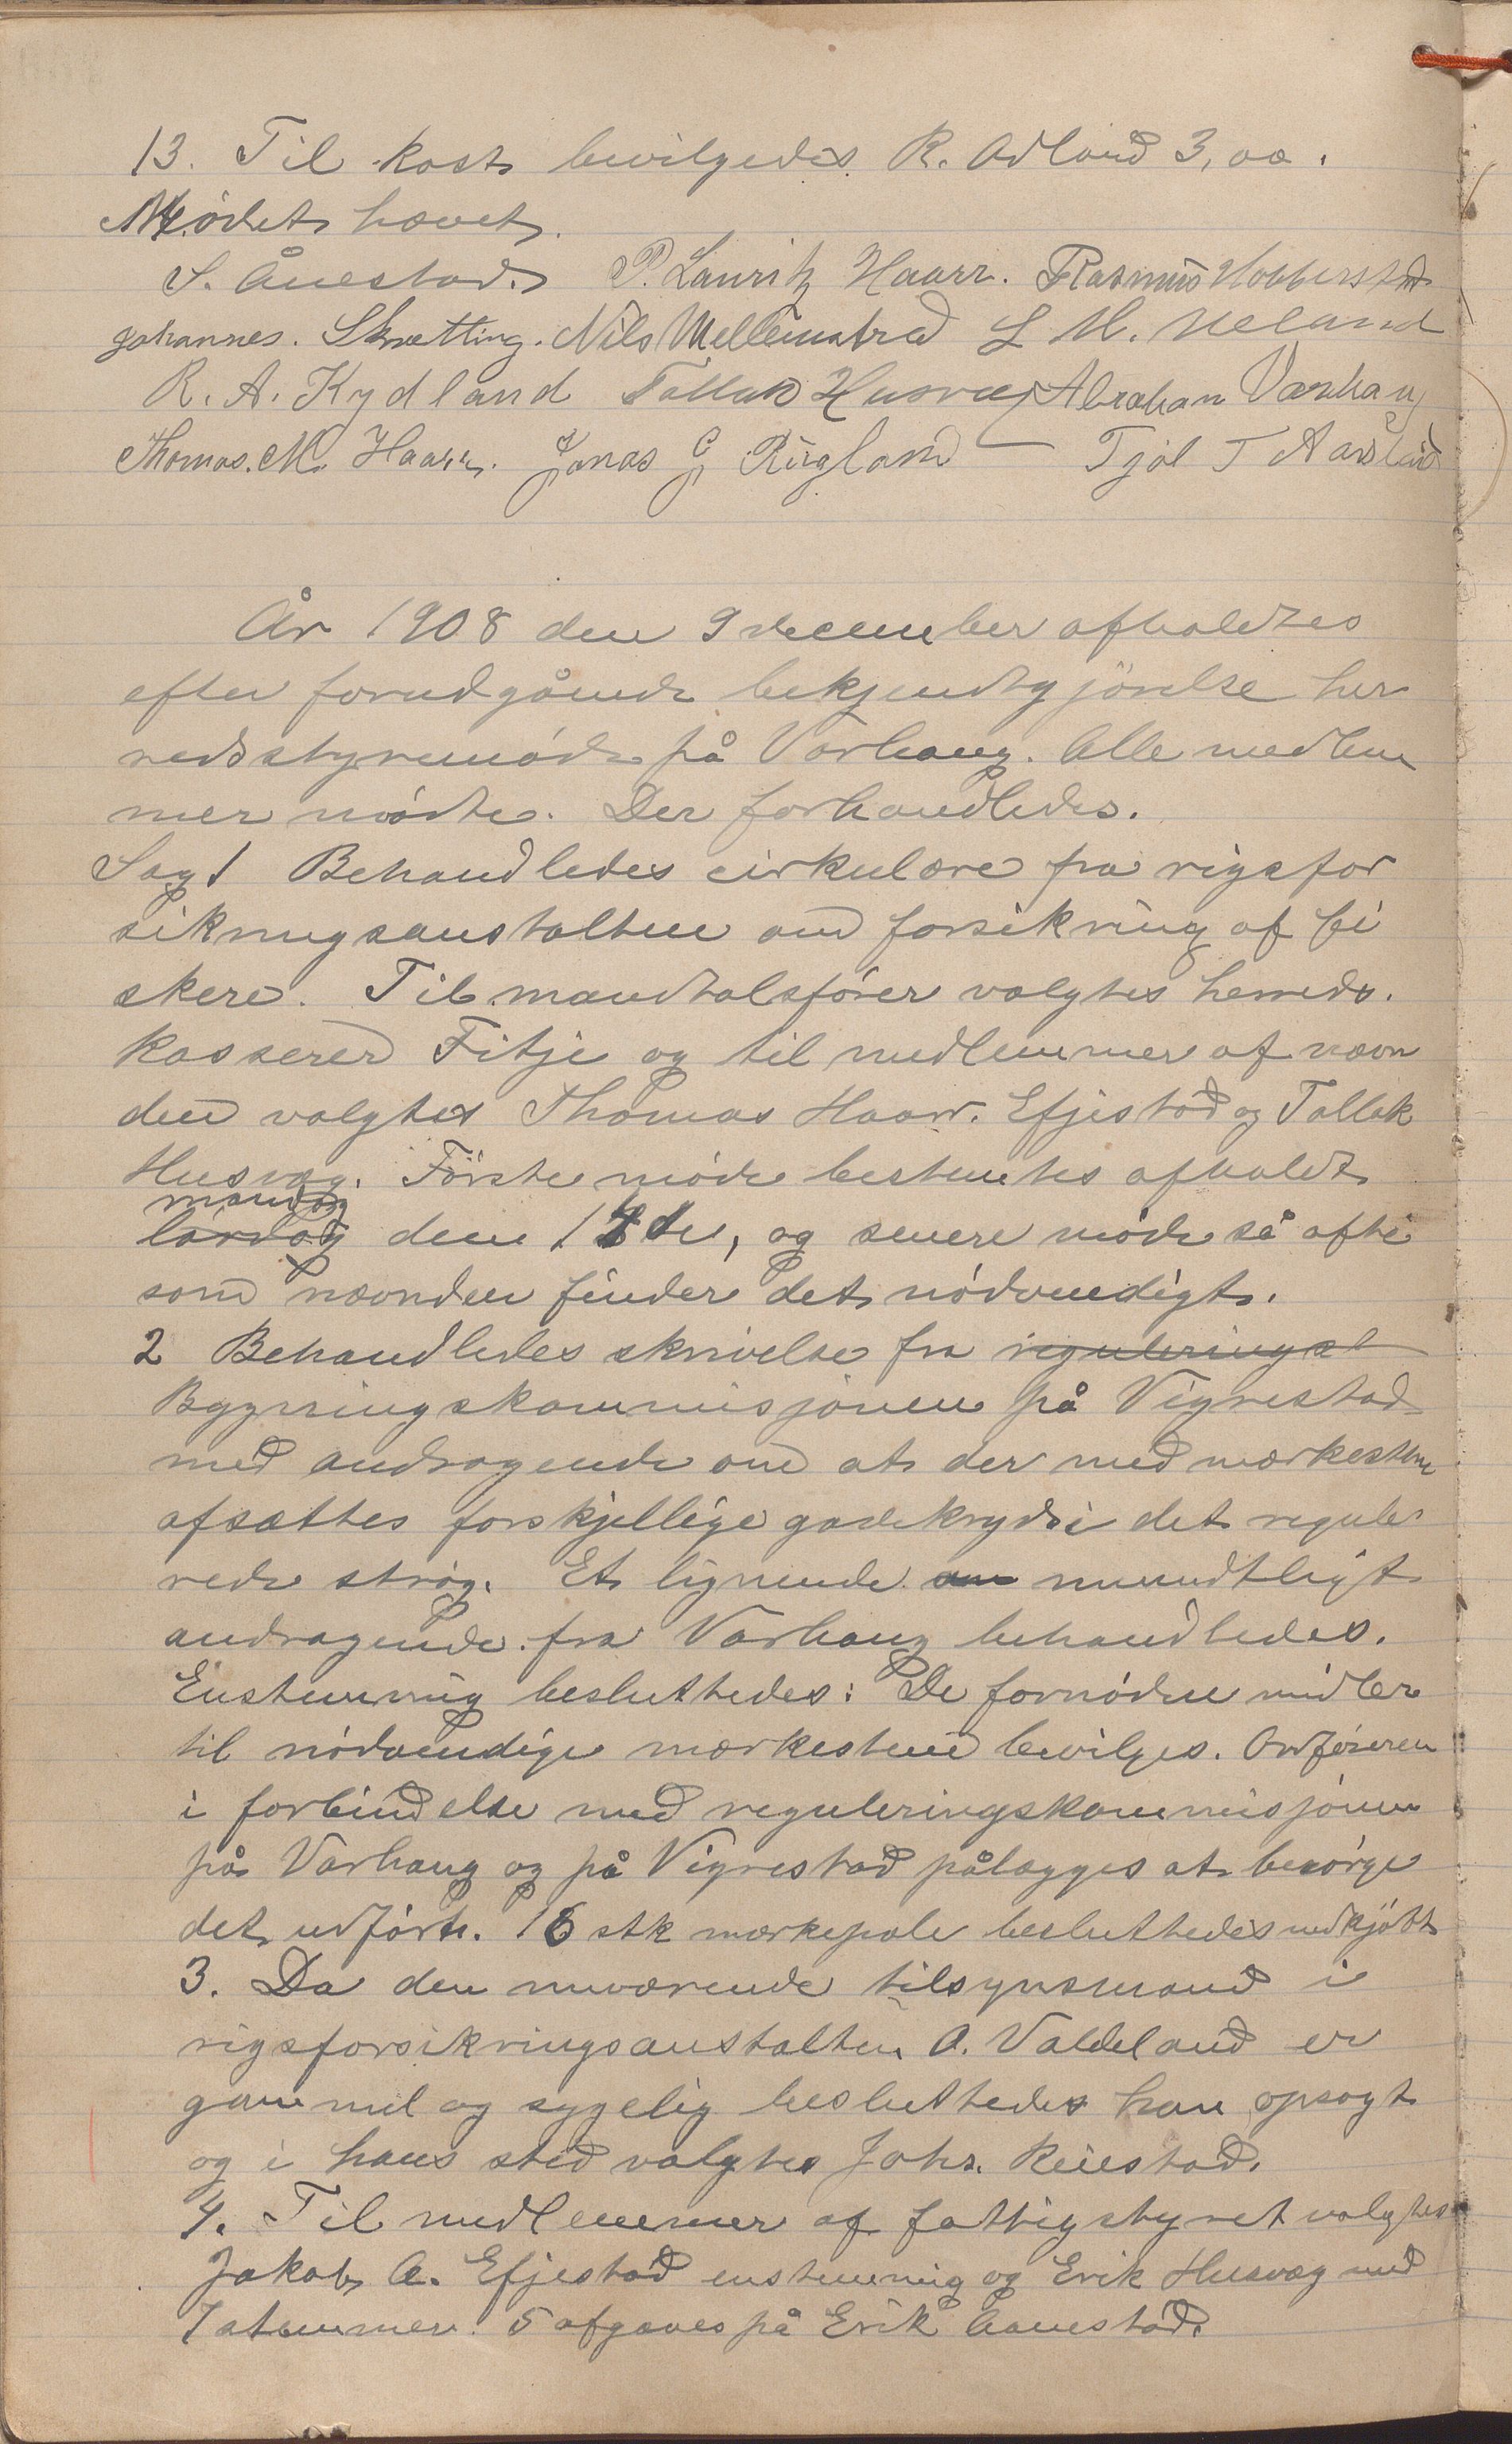 13. Til kost bevilgedes R. Adland 3,00.
Mødet hævet.
S. Ånestad. P. Lauritz Haarr. Rasmus Hobberstad
Johannes. Skretting. Nils Mellemstrad L M. Ueland
R. A. Kydland Tollak Husvæg Abraham Varhaug
Thomas. M. Haarr. Jonas G Rugland Tjøl T Aarsland
År 1908 den 9 december afholdtes
efter forudgående bekjendtgjörelse her
redsstyremøde på Varhaug. Alle medlem
mer mødte. Der forhandledes.
Sag 1 Behandledes cirkulære fra rigsfor
sikringsanstalten om forsikring af fi
skere. Til mandtalsfører valgtes herreds.
kasserer Fitje og til medlemmer af nævn
den valgtes Thomas Haarr. Efjestad og Tollak
Husvæg. Første møde bestemtes afholdt
mandag
lørdag den 14de, og senere møde så ofte
som nævnden finder det nødvendigt.
2 Behandledes skrivelse fra regulerings
Bygningskommisjonen på Vigrestad
med andragende om at der med mærkesten
afsættes forskjellige gadekryds i det regule
rede strøg. Et lignende an mundtligt
andragende fra Varhaug behandledes.
Enstemmig besluttedes: De fornødne midler
til nødvendige mærkestene bevilges. Ordføreren
i forbindelse med reguleringskommisjonen
på Varhaug og på Vigrestad pålægges at besørge
det udført. 16 stk mærkepæle besluttedes indkjøbt
3. Da den nuværende tilsynsmand i
rigsforsikringsanstalten A. Valdeland er
gammel og sygelig besluttedes han opsagt
og i hans sted valgtes Johs. Reiestad.
4. Til medlemmer af fattigstyret valgtes
Jakob A. Efjestad enstemmig og Erik Husvæg med
7 stemmer. 5 afgaves på Erik Aanestad.